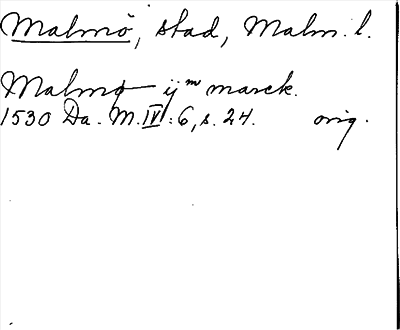 Malmö, stad, Malm. l.
Malmø ijm marck.
1530 Da. M. IV: 6, s. 24. orig.